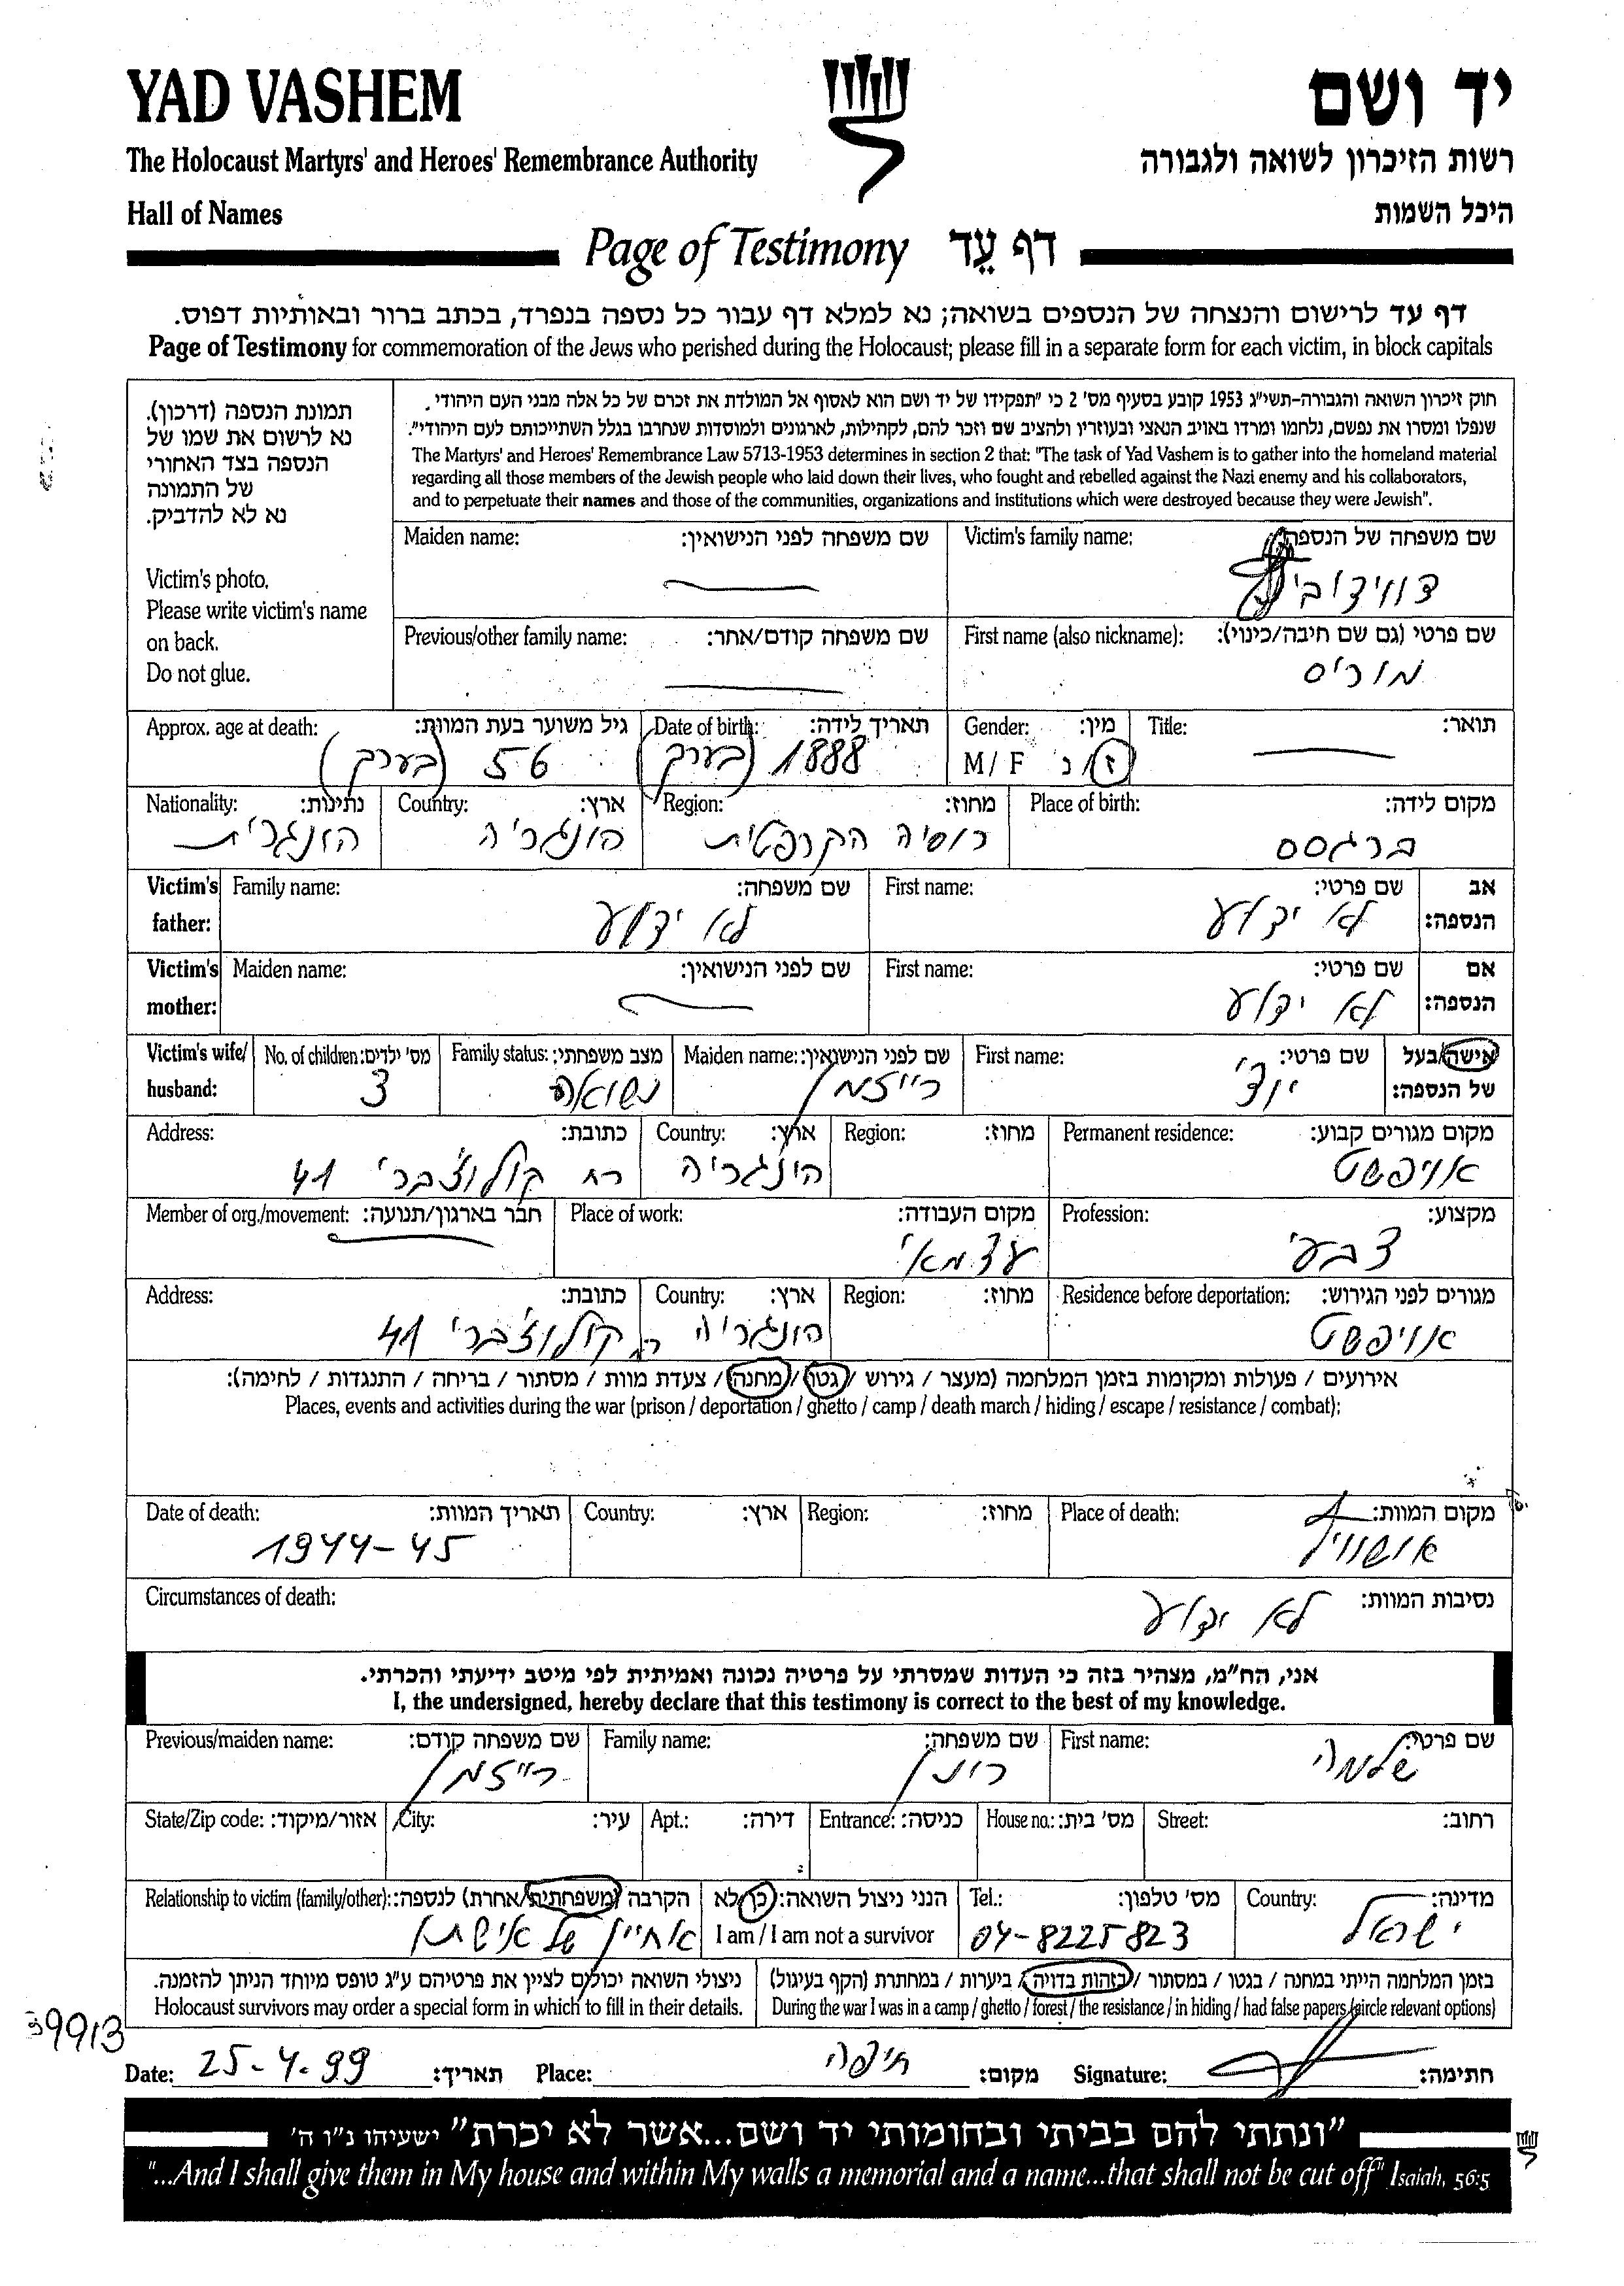 YAD VASHEM
יד ושם
The Holocaust Martyrs' and Heroes' Remembrance Authority
רשות הזיכרון לשואה ולגבורה
Hall of Names
היכל השמות
Page of Testimony דף עֵד
דף עד לרישום והנצחה של הנספים בשואה; נא למלא דף עבור כל נספה בנפרד, בכתב ברור ובאותיות דפוס.
Page of Testimony for commemoration of the Jews who perished during the Holocaust; please fill in a separate form for each victim, in block capitals
תמונת הנספה (דרכון).
נא לרשום את שמו של
הנספה בצד האחורי
של התמונה
נא לא להדביק.
Victim's photo.
Please write victim's name
on back.
Do not glue.
חוק זיכרון השואה והגבורה-תשי"ג 1953 קובע בסעיף מס' 2 כי "תפקידו של יד ושם הוא לאסוף אל המולדת את זכרם של כל אלה מבני העם היהודי,
שנפלו ומסרו את נפשם, נלחמו ומרדו באויב הנאצי ובעוזריו ולהציב שם וזכר להם, לקהילות, לארגונים ולמוסדות שנחרבו בגלל השתייכותם לעם היהודי".
The Martyrs' and Heroes' Remembrance Law 5713-1953 determines in section 2 that: "The task of Yad Vashem is to gather into the homeland material
regarding all those members of the Jewish people who laid down their lives, who fought and rebelled against the Nazi enemy and his collaborators,
and to perpetuate their names and those of the communities, organizations and institutions which were destroyed because they were Jewish".
Maiden name: שם משפחה לפני הנישואין: Victim's family name: שם משפחה של הנספה:
Previous/other family name: שם משפחה קודם/אחר: First name (also nickname): שם פרטי (גם שם חיבה/כינוי):
מוריס
Approx. age at death: גיל משוער בעת המוות: Date of birth: תאריך לידה: Gender: מין: Title: תואר:
56 (בערך) 1888 (בערך) M / F ז / נ
Nationality: נתינות: Country: ארץ: Region: מחוז: Place of birth: מקום לידה:
הונגרית הונגריה רוסיה הקרפטית ברגסס
Victim's father: Family name: שם משפחה: First name: שם פרטי: אב הנספה:
לא ידוע לא ידוע
Victim's mother: Maiden name: שם לפני הנישואין: First name: שם פרטי: אם הנספה:
לא ידוע
Victim's wife/ husband: No. of children: מס' ילדים: Family status: מצב משפחתי: Maiden name: שם לפני הנישואין: First name: שם פרטי: אישה/בעל של הנספה:
3 נשואה רייזמן יודי
Address: כתובת: Country: ארץ: Region: מחוז: Permanent residence: מקום מגורים קבוע:
רח קולוצ'ברי 41 הונגריה אויפשט
Member of org./movement: חבר בארגון/תנועה: Place of work: מקום העבודה: Profession: מקצוע:
עצמאי צבעי
Address: כתובת: Country: ארץ: Region: מחוז: Residence before deportation: מגורים לפני הגירוש:
רח קולוצ'ברי 41 הונגריה אויפשט
אירועים / פעולות ומקומות בזמן המלחמה (מעצר / גירוש / גטו / מחנה / צעדת מוות / מסתור / בריחה / התנגדות / לחימה):
Places, events and activities during the war (prison / deportation / ghetto / camp / death march / hiding / escape / resistance / combat):
Date of death: תאריך המוות: Country: ארץ: Region: מחוז: Place of death: מקום המוות:
1944-45 אושוויץ
Circumstances of death: נסיבות המוות:
לא ידוע
אני, הח"מ, מצהיר בזה כי העדות שמסרתי על פרטיה נכונה ואמיתית לפי מיטב ידיעתי והכרתי.
I, the undersigned, hereby declare that this testimony is correct to the best of my knowledge.
Previous/maiden name: שם משפחה קודם: Family name: שם משפחה: First name: שם פרטי:
רייזמן רונן שלמה
State/Zip code: אזור/מיקוד: City: עיר: Apt.: דירה: Entrance: כניסה: House no.: מס' בית: Street: רחוב:
Relationship to victim (family/other): הקרבה (משפחתית/אחרת) לנספה: הנני ניצול השואה: כן/לא Tel.: מס' טלפון: Country: מדינה:
אחיין של אישתו I am / I am not a survivor 04-8225823 ישראל
ניצולי השואה יכולים לציין את פרטיהם ע"ג טופס מיוחד הניתן להזמנה.
Holocaust survivors may order a special form in which to fill in their details.
בזמן המלחמה הייתי במחנה / בגטו / במסתור / בזהות בדויה / ביערות / במחתרת (הקף בעיגול)
During the war I was in a camp / ghetto / forest / the resistance / in hiding / had false papers (circle relevant options)
Date: 25-4-99 תאריך: Place: חיפה מקום: Signature: חתימה:
"ונתתי להם בביתי ובחומותי יד ושם...אשר לא יכרת" ישעיהו נ"ו ה'
"...And I shall give them in My house and within My walls a memorial and a name...that shall not be cut off" Isaiah, 56:5